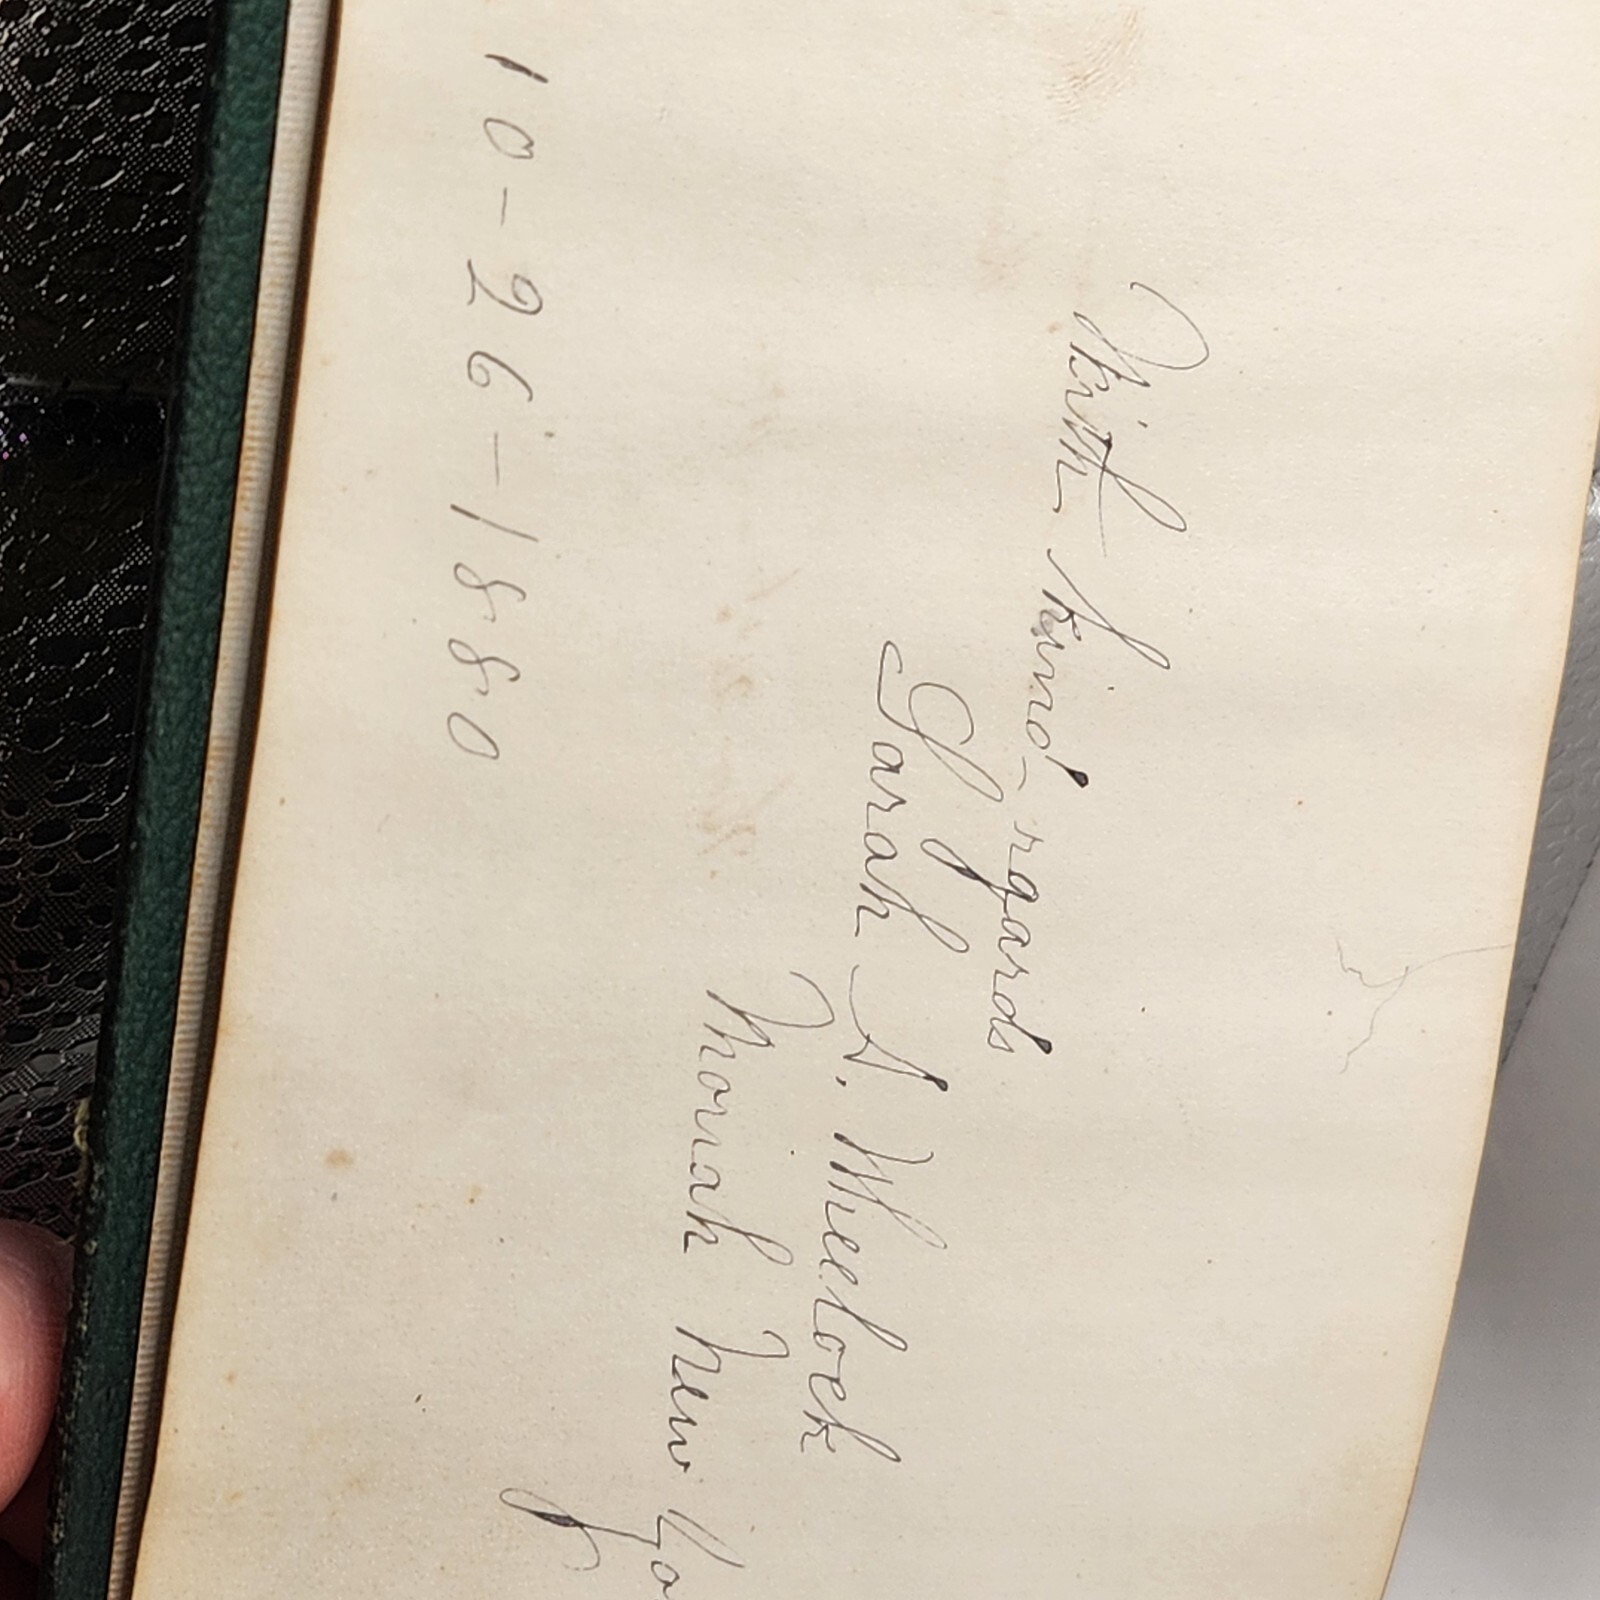 With kind rgards
Sarah A. Wheelock
Moriah New Yo
10-26-1880